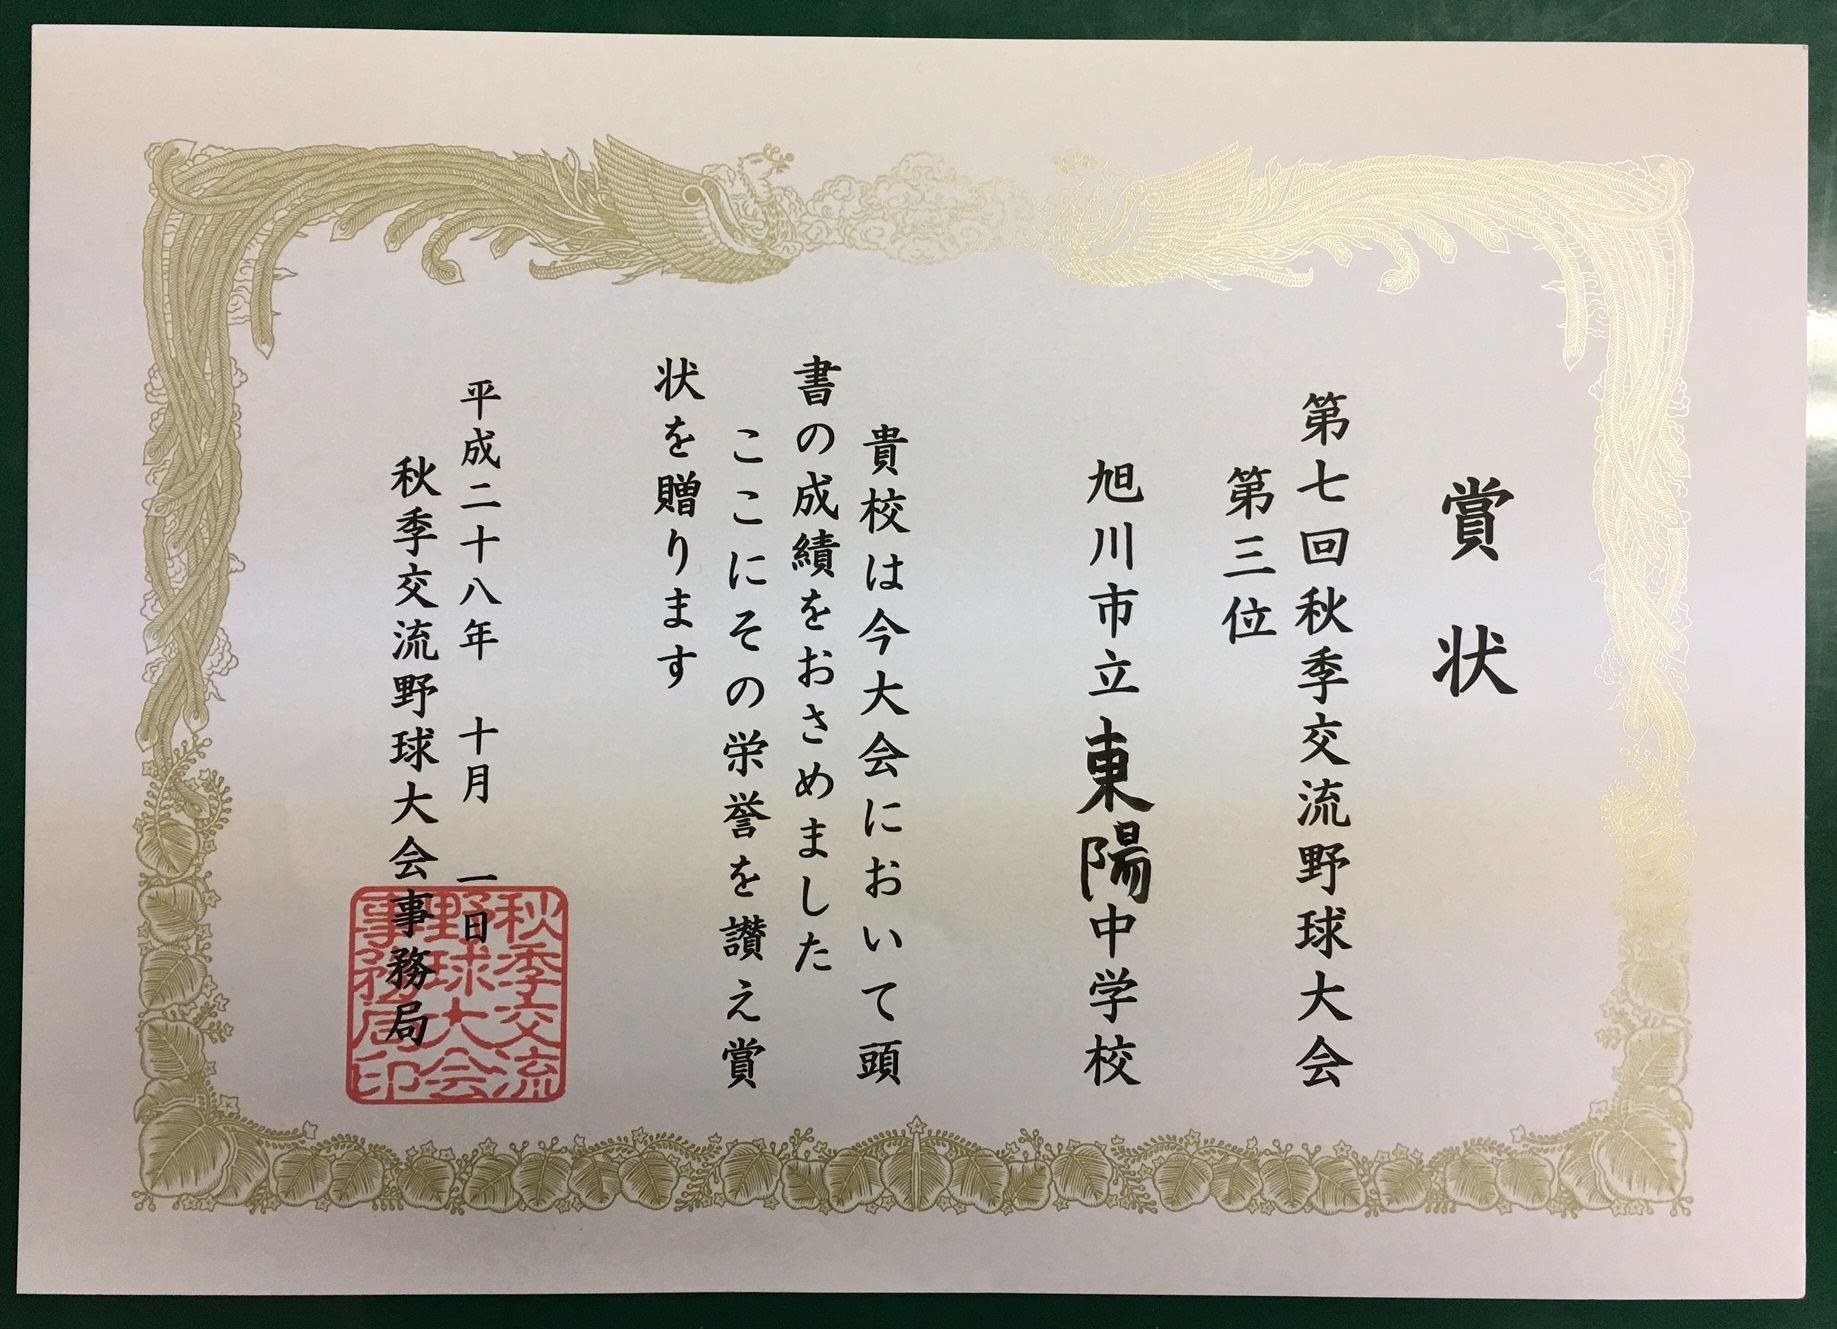 賞状
第七回秋季交流野球大会
第三位
旭川市立東陽中学校
貴校は今大会において頭
書の成績をおさめました
ここにその栄誉を讃え賞
状を贈ります
平成二十八年 十月 一日
秋季交流野球大会事務局
秋季交流
野球大会
事務局印